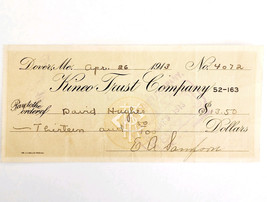 Dover, Me. Apr. 26 1913 No. 4072
Kineo Trust Company 52-163
Pay to the order of David Hughes $13.50
Thirteen and 50 Dollars